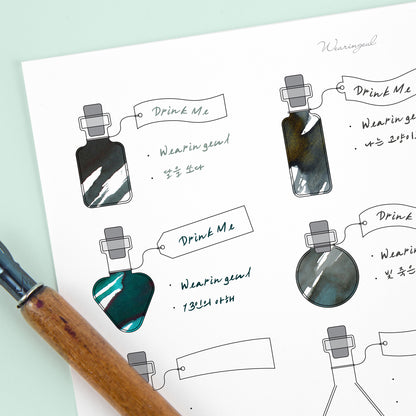 Wearingeul
Drink Me
• Wearingeul
• 달을 쏘다
Drink Me
• Wearingeul
• 나는 고양이
Drink Me
• Wearingeul
• 13인의 아해
Drink
• Wearin
• 빛 죽은